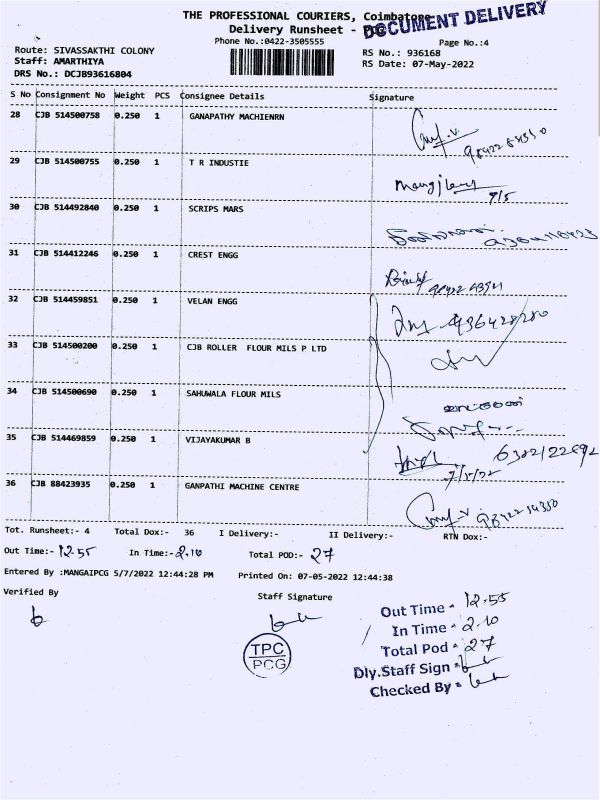 THE PROFESSIONAL COURIERS, Coimbatore
DOCUMENT DELIVERY
Delivery Runsheet -
Phone No.:0422-3505555
Page No.:4
Route: SIVASSAKTHI COLONY
RS No.: 936168
Staff: AMARTHIYA
RS Date: 07-May-2022
DRS No.: DCJB93616804
S No Consignment No Weight PCS Consignee Details Signature
28 CJB 514500758 0.250 1 GANAPATHY MACHIENRN
29 CJB 514500755 0.250 1 T R INDUSTIE
7/5
30 CJB 514492840 0.250 1 SCRIPS MARS
31 CJB 514412246 0.250 1 CREST ENGG
32 CJB 514459851 0.250 1 VELAN ENGG
33 CJB 514500200 0.250 1 CJB ROLLER FLOUR MILS P LTD
34 CJB 514500690 0.250 1 SAHUWALA FLOUR MILS
35 CJB 514469859 0.250 1 VIJAYAKUMAR B
7/5/22
36 CJB 88423935 0.250 1 GANPATHI MACHINE CENTRE
Tot. Runsheet:- 4 Total Dox:- 36 I Delivery:- II Delivery:- RTN Dox:-
Out Time:- 12.55 In Time:- 2.10 Total POD:- 27
Entered By :MANGAIPCG 5/7/2022 12:44:28 PM Printed On: 07-05-2022 12:44:38
Verified By Staff Signature
TPC
PCG
Out Time - 12.55
In Time - 2.10
Total Pod - 27
Dly.Staff Sign -
Checked By -